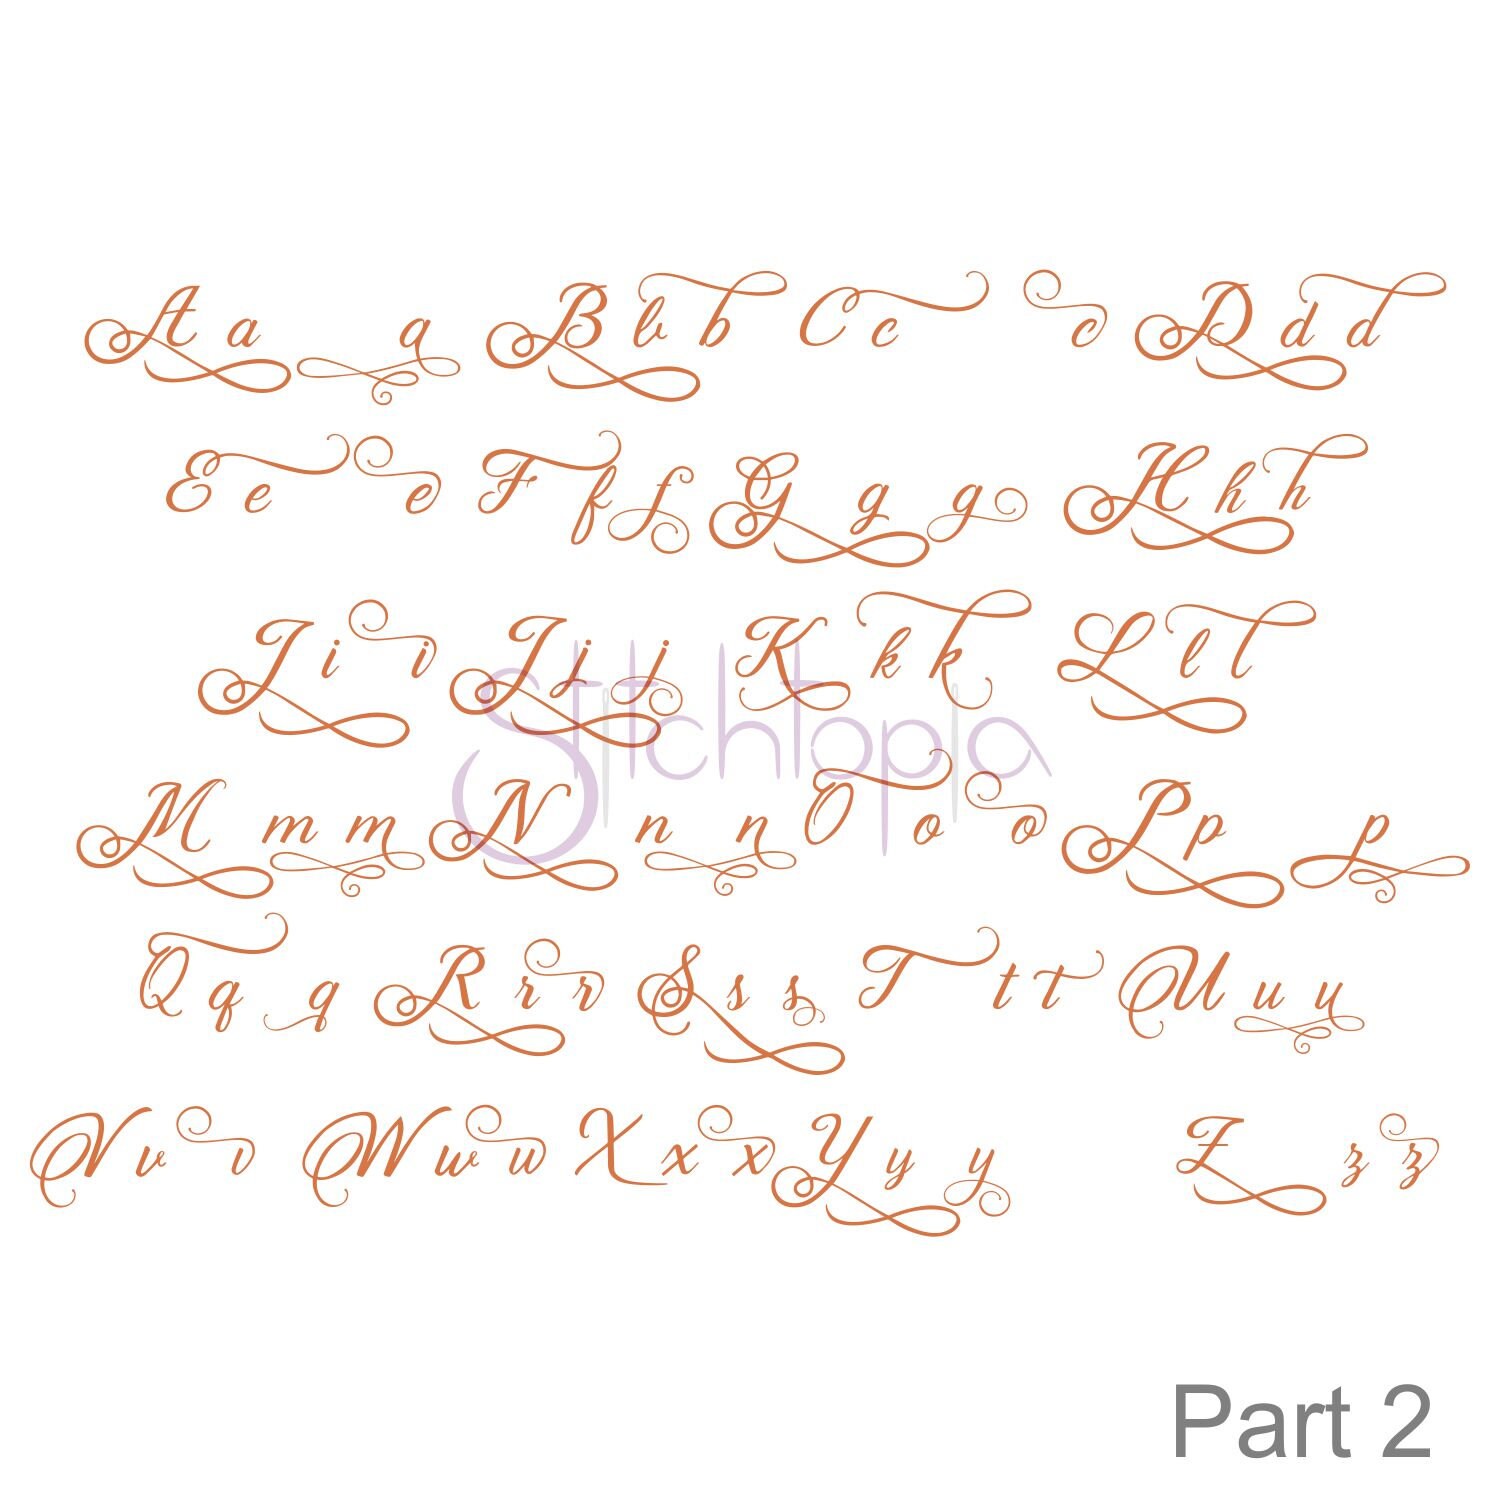 A a a B b b C c c D d d
E e e F f f G g g H h h
I i i J j j K k k L l l
Stitchtopia
M m m N n n O o o P p p
Q q q R r r S s s T t t U u u
V v v W w w X x x Y y y Z z z
Part 2